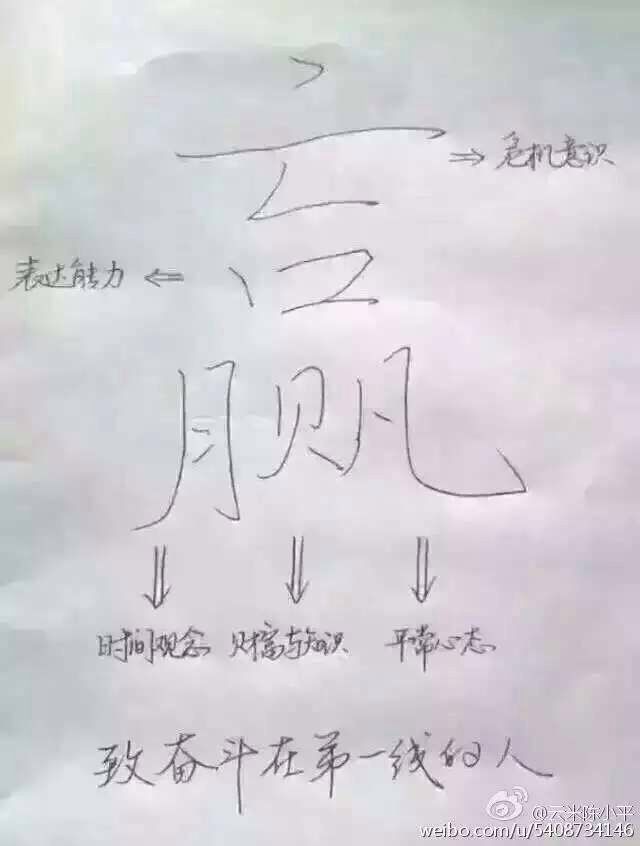 赢
⇒ 危机意识
表达能力 ⇐
时间观念 财富与知识 平常心态
致奋斗在第一线的人
@云米陈小平
weibo.com/u/5408734146